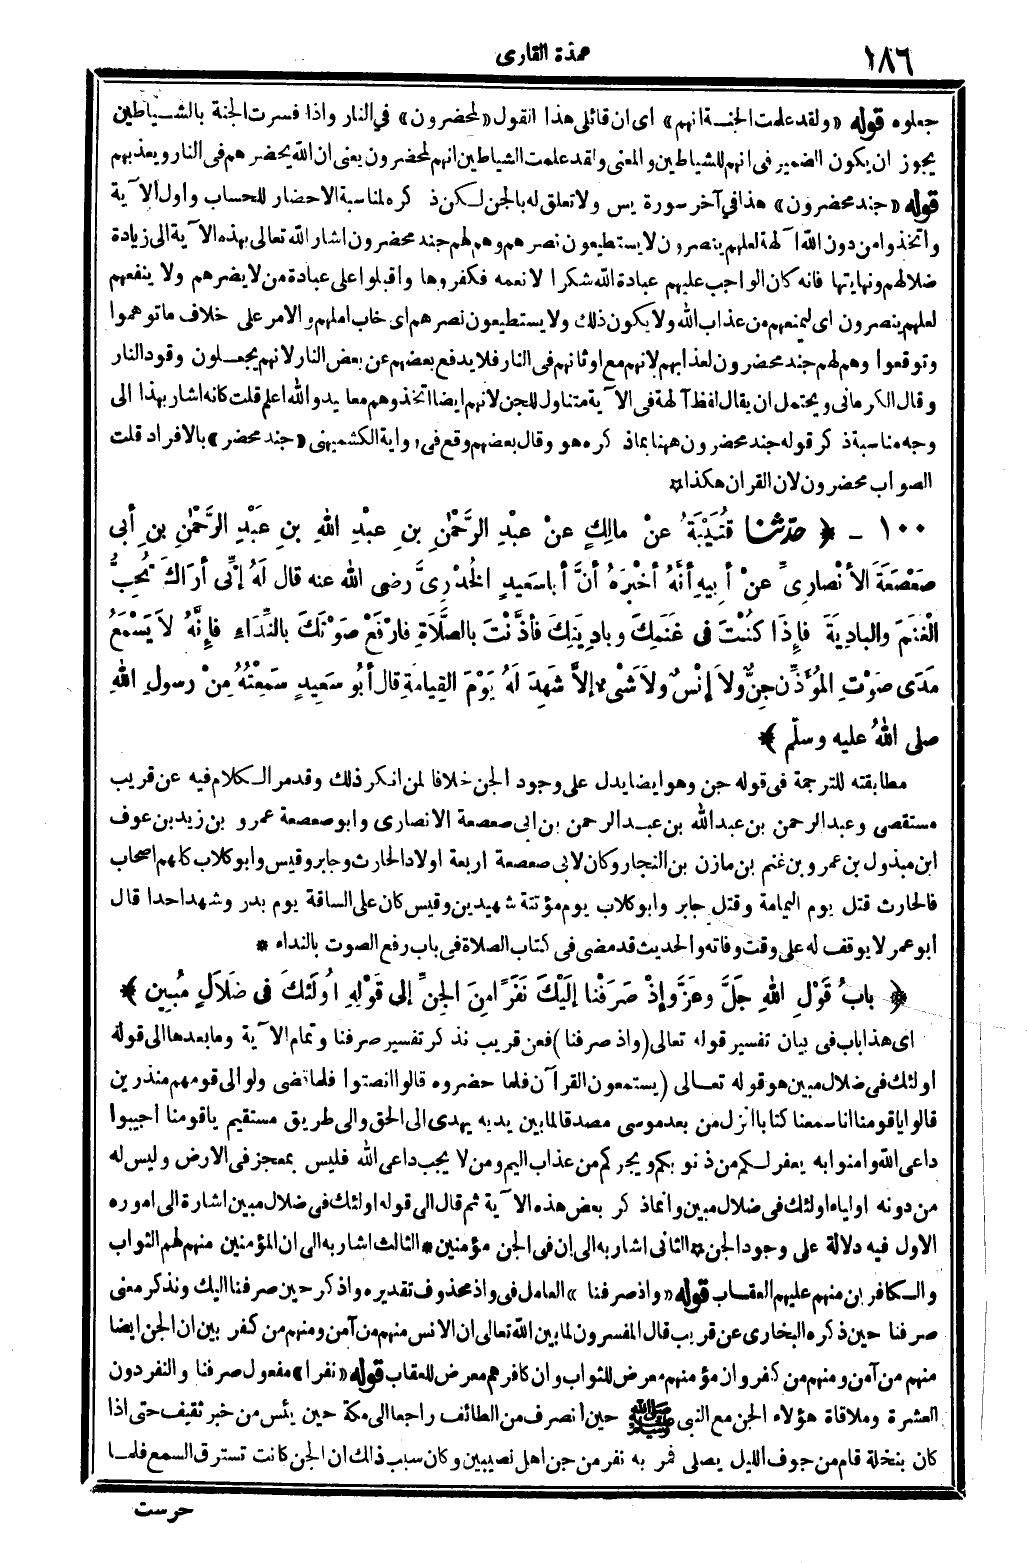 ١٨٦
عمدة القارى
جعلوه قوله «ولقد علمت الجنة انهم» اى ان قائلى هذا القول «لمحضرون» في النار واذا فسرت الجنة بالشياطين
يجوز ان يكون الضمير فى انهم للشياطين والمعنى ولقد علمت الشياطين انهم لمحضرون يعنى ان الله يحضرهم فى النار ويعذبهم
قوله «جند محضرون» هذا في آخر سورة يس ولا تعلق له بالجن لكن ذكره لمناسبة الاحضار للحساب واول الآية
واتخذوا من دون الله آلهة لعلهم ينصرون لا يستطيعون نصرهم وهم لهم جند محضرون اشار الله تعالى بهذه الآية الى زيادة
ضلالهم ونهايتها فانه كان الواجب عليهم عبادة الله شكرا لانعمه فكفروها واقبلوا على عبادة من لا يضرهم ولا ينفعهم
لعلهم ينصرون اى ليمنعهم من عذاب الله ولا يكون ذلك ولا يستطيعون نصرهم اى خاب املهم والامر على خلاف ما توهموا
وتوقعوا وهم لهم جند محضرون لعذابهم لانهم مع اوثانهم فى النار فلا يدفع بعضهم عن بعض النار لانهم يجعلون وقود النار
وقال الكرمانى ويحتمل ان يقال لفظ آلهة فى الآية متناول للجن لانهم ايضا اتخذوهم معابيد والله اعلم قلت كانه اشار بهذا الى
وجه مناسبة ذكر قوله جند محضرون ههنا بماذكره هو وقال بعضهم وقع فى رواية الكشميهنى «جند محضر» بالافراد قلت
الصواب محضرون لان القران هكذا ☆
١٠٠ - ﴿ حَدَّثَنَا قُتَيْبَةُ عَنْ مالِكٍ عنْ عبْدِ الرَّحْمٰنِ بنِ عبْدِ اللهِ بنِ عَبْدِ الرَّحْمٰنِ بنِ أبى
صَعْصَعَةَ الأَنْصارِىِّ عنْ أبِيهِ أنَّهُ أخْبَرَهُ أنَّ أبا سَعِيدٍ الخُدْرِىَّ رضى الله عنه قال لَهُ إنِّى أرَاكَ تُحِبُّ
الْغَنَمَ والبادِيَةَ فإِذَا كُنْتَ فى غَنَمِكَ وبادِيَتِكَ فأذَّنْتَ بالصَّلَاةِ فارْفَعْ صَوْتَكَ بالنِّدَاءِ فإِنَّهُ لاَ يَسْمَعُ
مَدَى صَوْتِ المُؤَذِّنِ جِنٌّ ولاَ إنْسٌ ولاَ شَىْءٌ إلاَّ شَهِدَ لَهُ يَوْمَ القِيامَةِ قال أبُو سَعِيدٍ سَمِعْتُهُ مِنْ رسولِ اللهِ
صلى اللهُ عليه وسلّم ﴾
مطابقته للترجمة فى قوله جن وهو ايضا يدل على وجود الجن خلافا لمن انكر ذلك وقد مر الكلام فيه عن قريب
مستقصى وعبد الرحمن بن عبد الله بن عبد الرحمن بن ابى صعصعة الانصارى وابو صعصعة عمرو بن زيد بن عوف
ابن مبذول بن عمرو بن غنم بن مازن بن النجار وكان لابى صعصعة اربعة اولاد الحارث وجابر وقيس وابو كلاب كلهم اصحاب
فالحارث قتل يوم اليمامة وقتل جابر وابو كلاب يوم مؤتة شهيدين وقيس كان على الساقة يوم بدر وشهد احدا قال
ابو عمر لا يوقف له على وقت وفاته والحديث قد مضى فى كتاب الصلاة فى باب رفع الصوت بالنداء *
﴿ بابُ قَوْلِ اللهِ جَلَّ وعَزَّ وإذْ صَرَفْنا إلَيْكَ نَفَرًا مِنَ الجِنِّ إلى قَوْلِهِ اُولَئِكَ فى ضَلَالٍ مُبِينٍ ﴾
اى هذا باب فى بيان تفسير قوله تعالى (واذ صرفنا) فعن قريب نذكر تفسير صرفنا وتمام الآية وما بعدها الى قوله
اولئك فى ضلال مبين هو قوله تعالى (يستمعون القرآن فلما حضروه قالوا انصتوا فلما قضى ولوا الى قومهم منذرين
قالوا يا قومنا انا سمعنا كتابا انزل من بعد موسى مصدقا لما بين يديه يهدى الى الحق والى طريق مستقيم يا قومنا اجيبوا
داعى الله وامنوا به يغفر لكم من ذنوبكم ويجركم من عذاب اليم ومن لا يجب داعى الله فليس بمعجز فى الارض وليس له
من دونه اولياء اولئك فى ضلال مبين وانما ذكر بعض هذه الآية ثم قال الى قوله اولئك فى ضلال مبين اشارة الى امور ه
الاول فيه دلالة على وجود الجن ☆ الثانى اشار به الى ان فى الجن مؤمنين * الثالث اشار به الى ان المؤمنين منهم لهم الثواب
والكافرين منهم عليهم العقاب قوله «واذ صرفنا» العامل فى واذ محذوف تقديره واذكر حين صرفنا اليك ونذكر معنى
صرفنا حين ذكره البخارى عن قريب قال المفسرون لما بين الله تعالى ان الانس منهم من آمن ومنهم من كفر بين ان الجن ايضا
منهم من آمن ومنهم من كفر وان مؤمنهم معرض للثواب وان كافرهم معرض للعقاب قوله «نفرا» مفعول صرفنا والنفر دون
العشرة وملاقاة هؤلاء الجن مع النبى ﷺ حين انصرف من الطائف راجعا الى مكة حين يئس من خبر ثقيف حتى اذا
كان بنخلة قام من جوف الليل يصلى فمر به نفر من جن اهل نصيبين وكان سبب ذلك ان الجن كانت تسترق السمع فلما
حرست